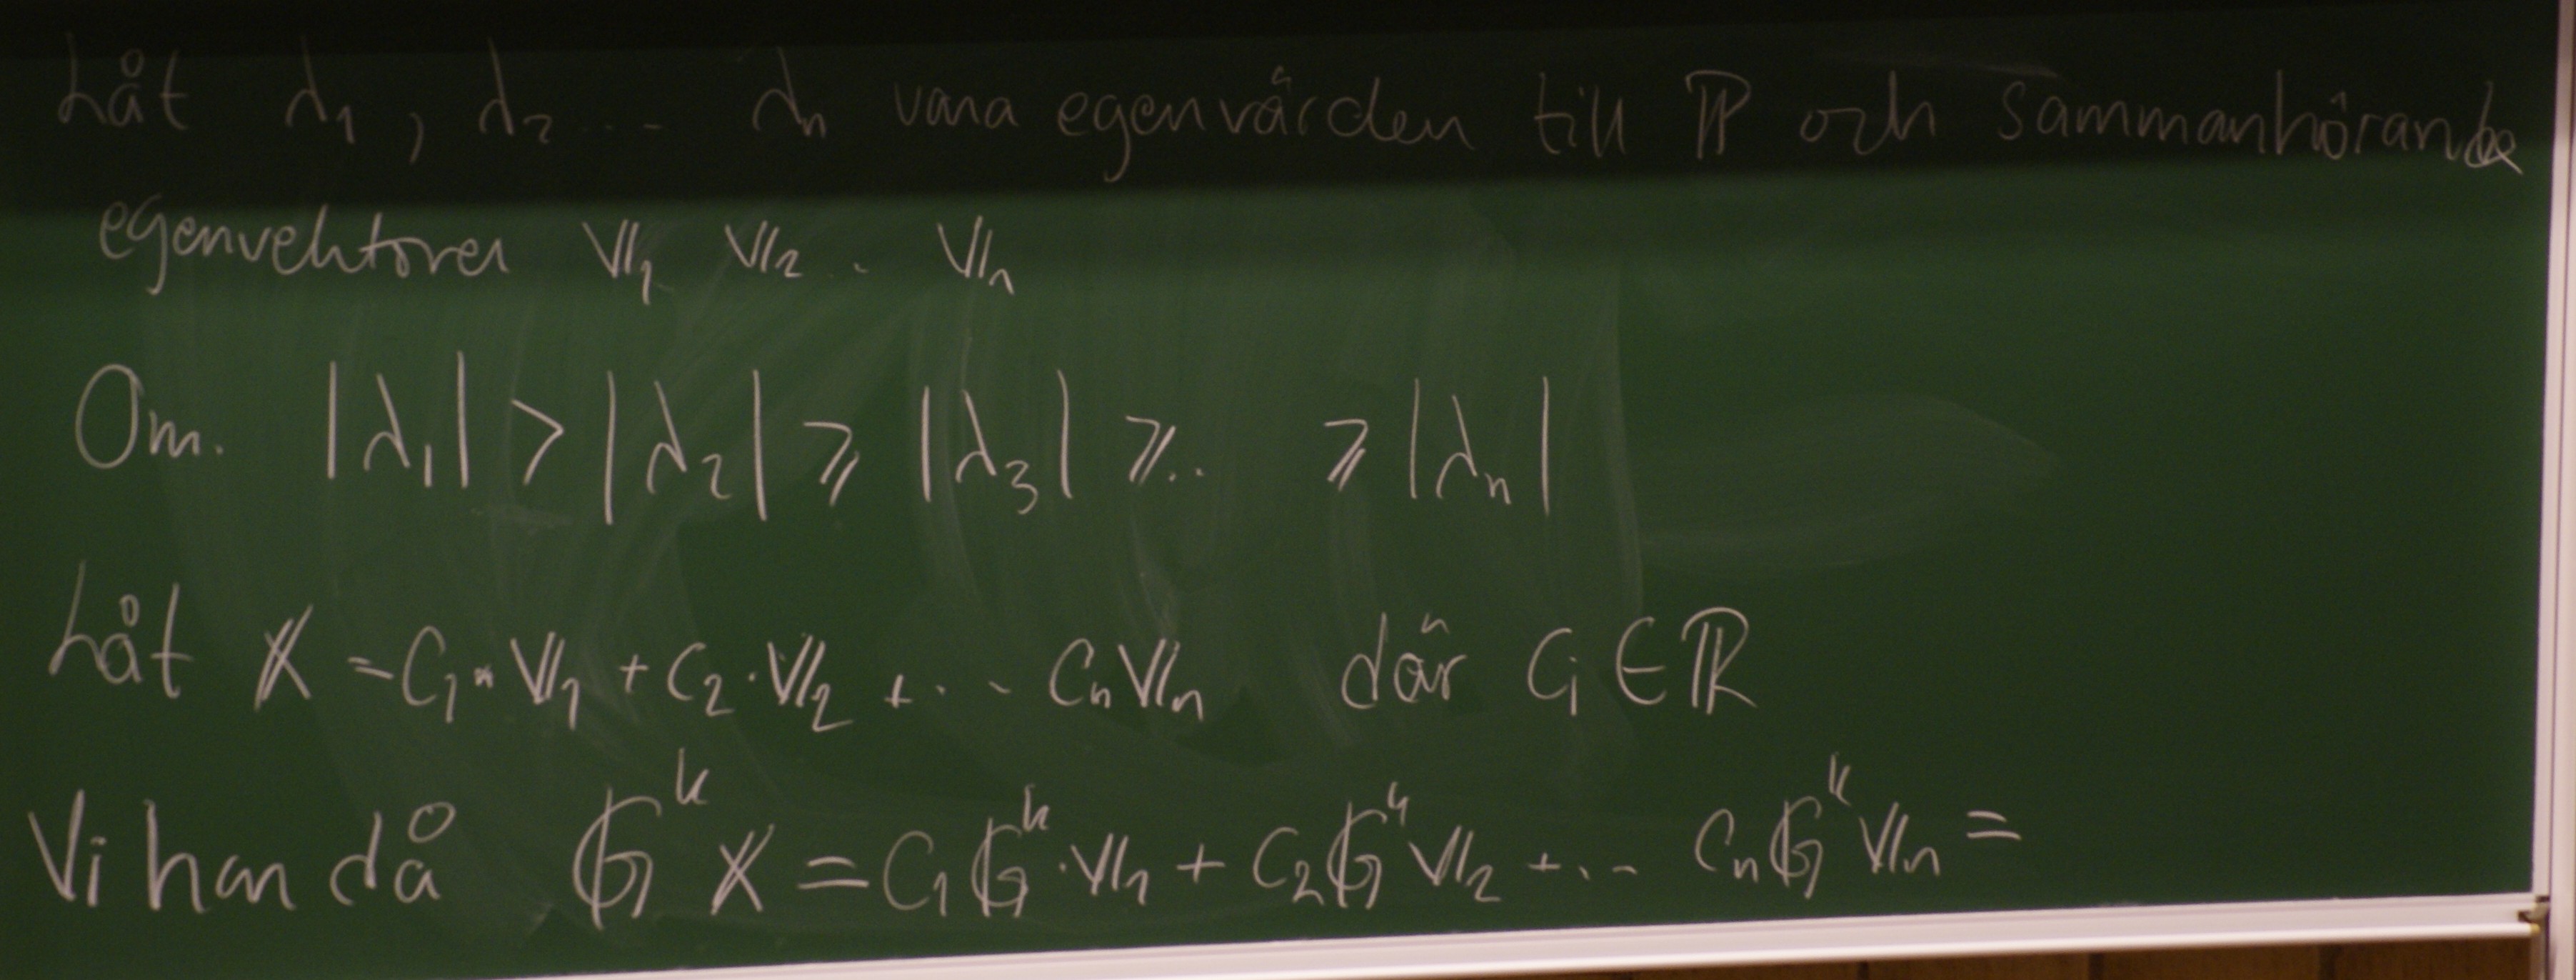 Låt λ₁, λ₂ ... λₙ vara egenvärden till ℙ och sammanhörande
egenvektorer 𝕍₁ 𝕍₂ .. 𝕍ₙ
Om. |λ₁| > |λ₂| ⩾ |λ₃| ⩾.. ⩾ |λₙ|
Låt 𝕏 = C₁·𝕍₁ + C₂·𝕍₂ + ... Cₙ𝕍ₙ där Cᵢ ∈ ℝ
Vi har då 𝔾ᵏ 𝕏 = C₁𝔾ᵏ·𝕍₁ + C₂𝔾ᵏ𝕍₂ + ... Cₙ𝔾ᵏ𝕍ₙ =